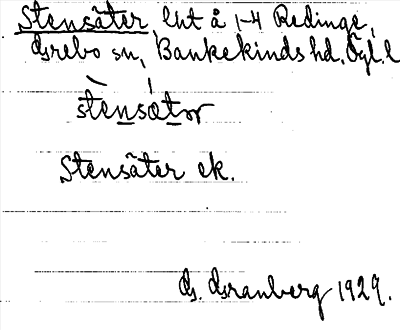 Stensäter, lht å 1-4 Redinge,
Grebo sn, Bankekinds hd. Ögl. l
Stensäter ek.
G. Granberg 1929.